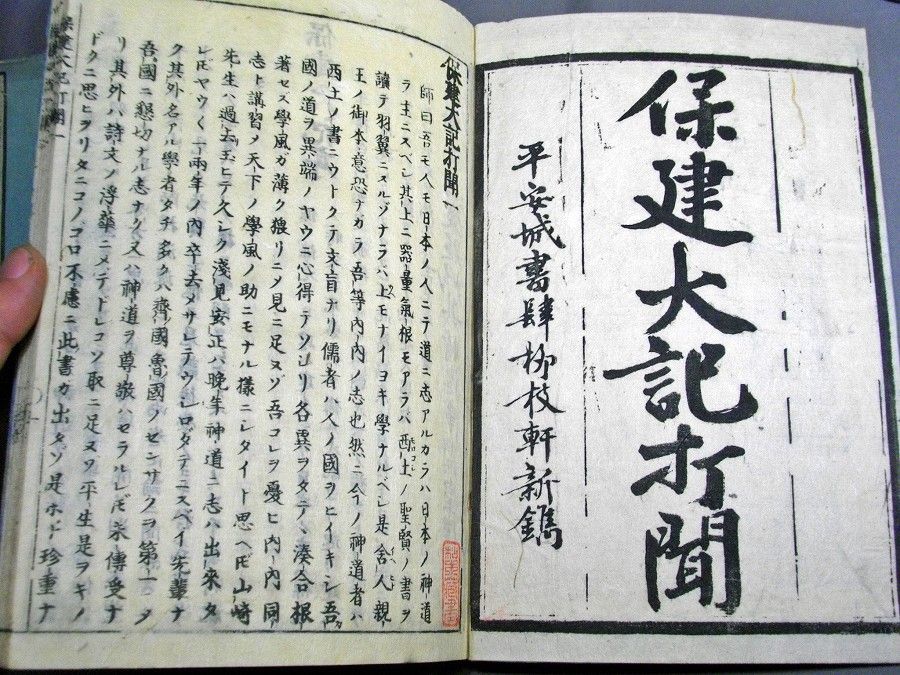 保建大記打聞
平安城書肆柳枝軒新鐫
保建大記打聞一
師曰吾モ人モ日本ノ人ニテ道ニ志アルカラハ日本ノ神道
ラ主ニスベシ其上ニ器量氣根モアラバ西土ノ聖賢ノ書ヲ
讀テ羽翼ニスルゾナラハ上モナイヨキ學ナルベシ是舎人親
王ノ御本意恐ナカラ吾等内内ノ志也然ニ今ノ神道者ハ
西土ノ書ニウトクテ文盲ナリ儒者ハ人ノ國ヲヒイキシ吾
國ノ道ヲ異端ノヤウニ心得テソシリ各異ヲタテヽ湊合根
著セス學風ガ薄ク猥リニメ見ニ足ヌゾ吾コレヲ憂ヒ内内同
志ト講習メ天下ノ學風ノ助ニモナル樣ニシタイト思ヘ𪜈山崎
先生ハ過去玉ヒテ久シク淺見安正ハ晩年神道ニ志ハ出來タ
レ𪜈ヤウ〱一兩年ノ内卒去メサレテウシロダテニスベイ先輩ナ
ク其外名アル學者タチ多クハ齊國魯國ノセンサクヲ第一ニメ
吾國ニ懇切ナル志ナク又ハ神道ヲ尊敬ハセラルレ𪜈未傳受ナ
リ其外ハ詩文ノ浮華ニメテドレコソ取ニ足ヌワ平生是ヲキノ
ドクニ思ヒヲリタニコノゴロ不慮ニ此書ガ出タゾ是ホド珍重ナ
保建大記打聞一